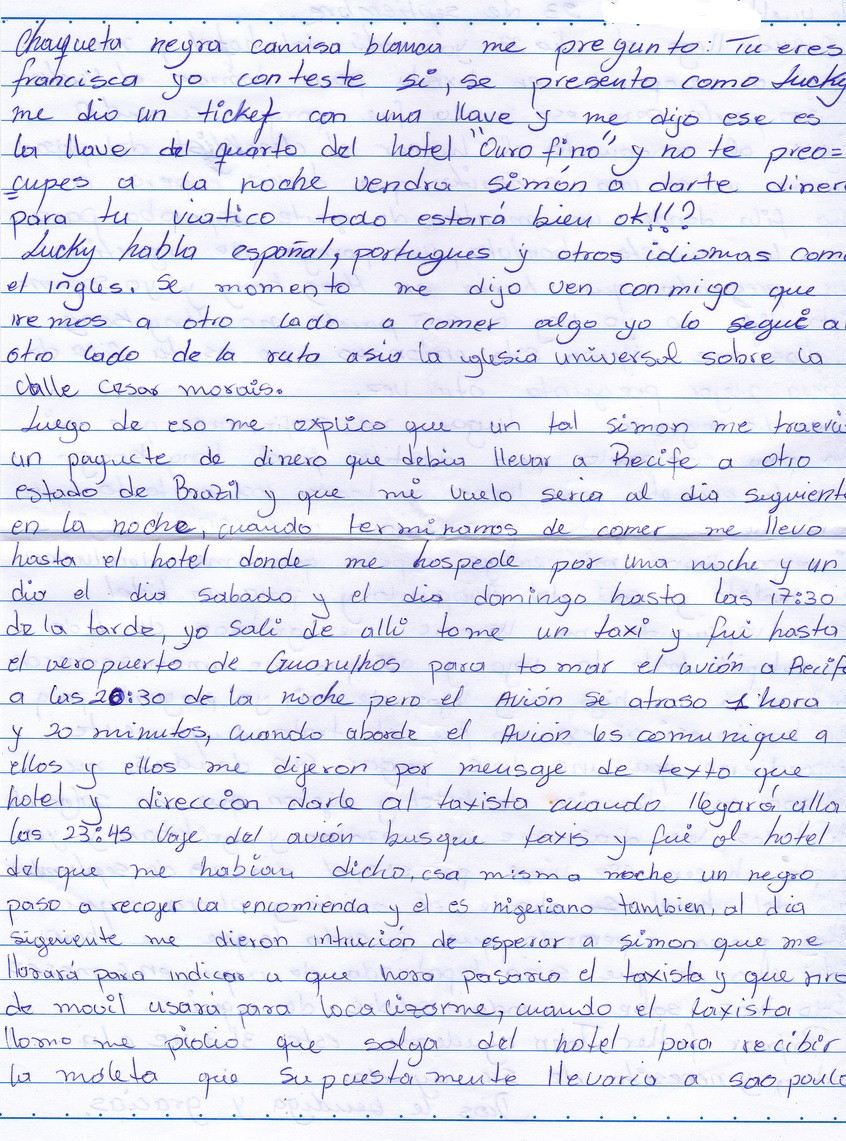 Chaqueta negra camisa blanca me pregunto: Tu eres
francisca yo conteste si, se presento como Lucky
me dio un ticket con una llave y me dijo ese es
la llave del quarto del hotel "Ouro fino" y no te preo=
cupes a la noche vendra simón a darte diner
para tu viatico todo estará bien ok!!?
Lucky habla español, portugues y otros idiomas com
el ingles. Se momento me dijo ven conmigo que
iremos a otro lado a comer algo yo lo segui a
otro lado de la ruta asia la iglesia universal sobre la
calle cesar morais.
Luego de eso me explico que un tal simon me traeri
un paquete de dinero que debia llevar a Recife a otro
estado de Brazil y que mi vuelo seria al dia siguient
en la noche, cuando terminamos de comer me llevo
hasta el hotel donde me hospede por una noche y un
dia el dia sabado y el dia domingo hasta las 17:30
de la tarde, yo sali de alli tome un taxi y fui hasta
el aeropuerto de Guarulhos para tomar el avión a Recif
a las 20:30 de la noche pero el Avión se atraso 1 hora
y 20 minutos, cuando aborde el Avión les comunique a
ellos y ellos me dijeron por mensaje de texto que
hotel y direccion darle al taxista cuando llegará alla
las 23:45 baje del avión busque taxis y fui al hotel
del que me habian dicho, esa misma noche un negro
paso a recojer la encomienda y el es nigeriano tambien, al dia
sigeriente me dieron intrución de esperar a simon que me
llorará para indicar a que hora pasario el taxista y que nro
de movil usará para localizarme, cuando el taxista
llamo me pidio que salga del hotel para recibir
la maleta que supuestamente llevaria a sao paulo